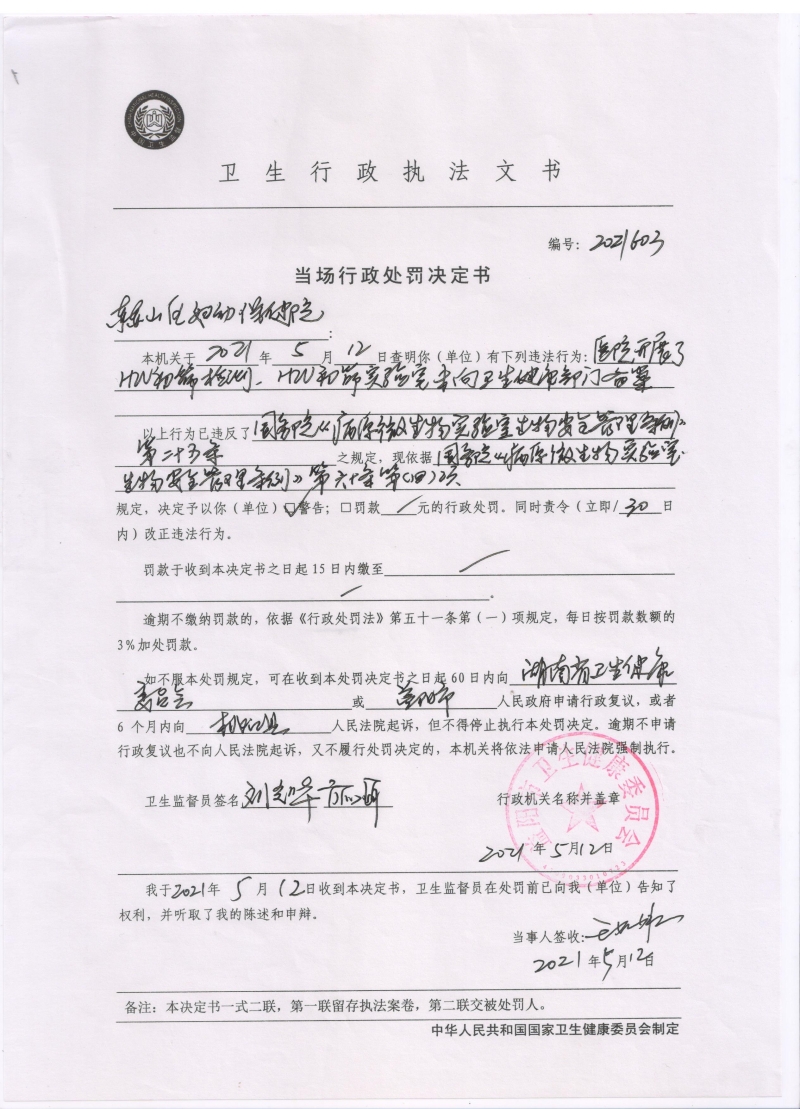 卫生行政执法文书
编号：2021603
当场行政处罚决定书
区妇幼保健院：
本机关于2021年5月12日查明你（单位）有下列违法行为：医院开展了
HIV初筛检测、HIV初筛实验室未向卫生健康部门备案
以上行为已违反了国务院《病原微生物实验室生物安全管理条例》
第二十五条之规定，现依据国务院《病原微生物实验室
生物安全管理条例》第六十条第（四）项
规定，决定予以你（单位）☑警告；□罚款/元的行政处罚。同时责令（立即/30日
内）改正违法行为。
罚款于收到本决定书之日起15日内缴至/
/。
逾期不缴纳罚款的，依据《行政处罚法》第五十一条第（一）项规定，每日按罚款数额的
3%加处罚款。
如不服本处罚规定，可在收到本处罚决定书之日起60日内向湖南省卫生健康
委员会或益阳市人民政府申请行政复议，或者
6个月内向桃江县人民法院起诉，但不得停止执行本处罚决定。逾期不申请
行政复议也不向人民法院起诉，又不履行处罚决定的，本机关将依法申请人民法院强制执行。
卫生监督员签名 行政机关名称并盖章
益阳市卫生健康委员会
2021年5月12日
我于2021年5月12日收到本决定书，卫生监督员在处罚前已向我（单位）告知了
权利，并听取了我的陈述和申辩。
当事人签收：
2021年5月12日
备注：本决定书一式二联，第一联留存执法案卷，第二联交被处罚人。
中华人民共和国国家卫生健康委员会制定